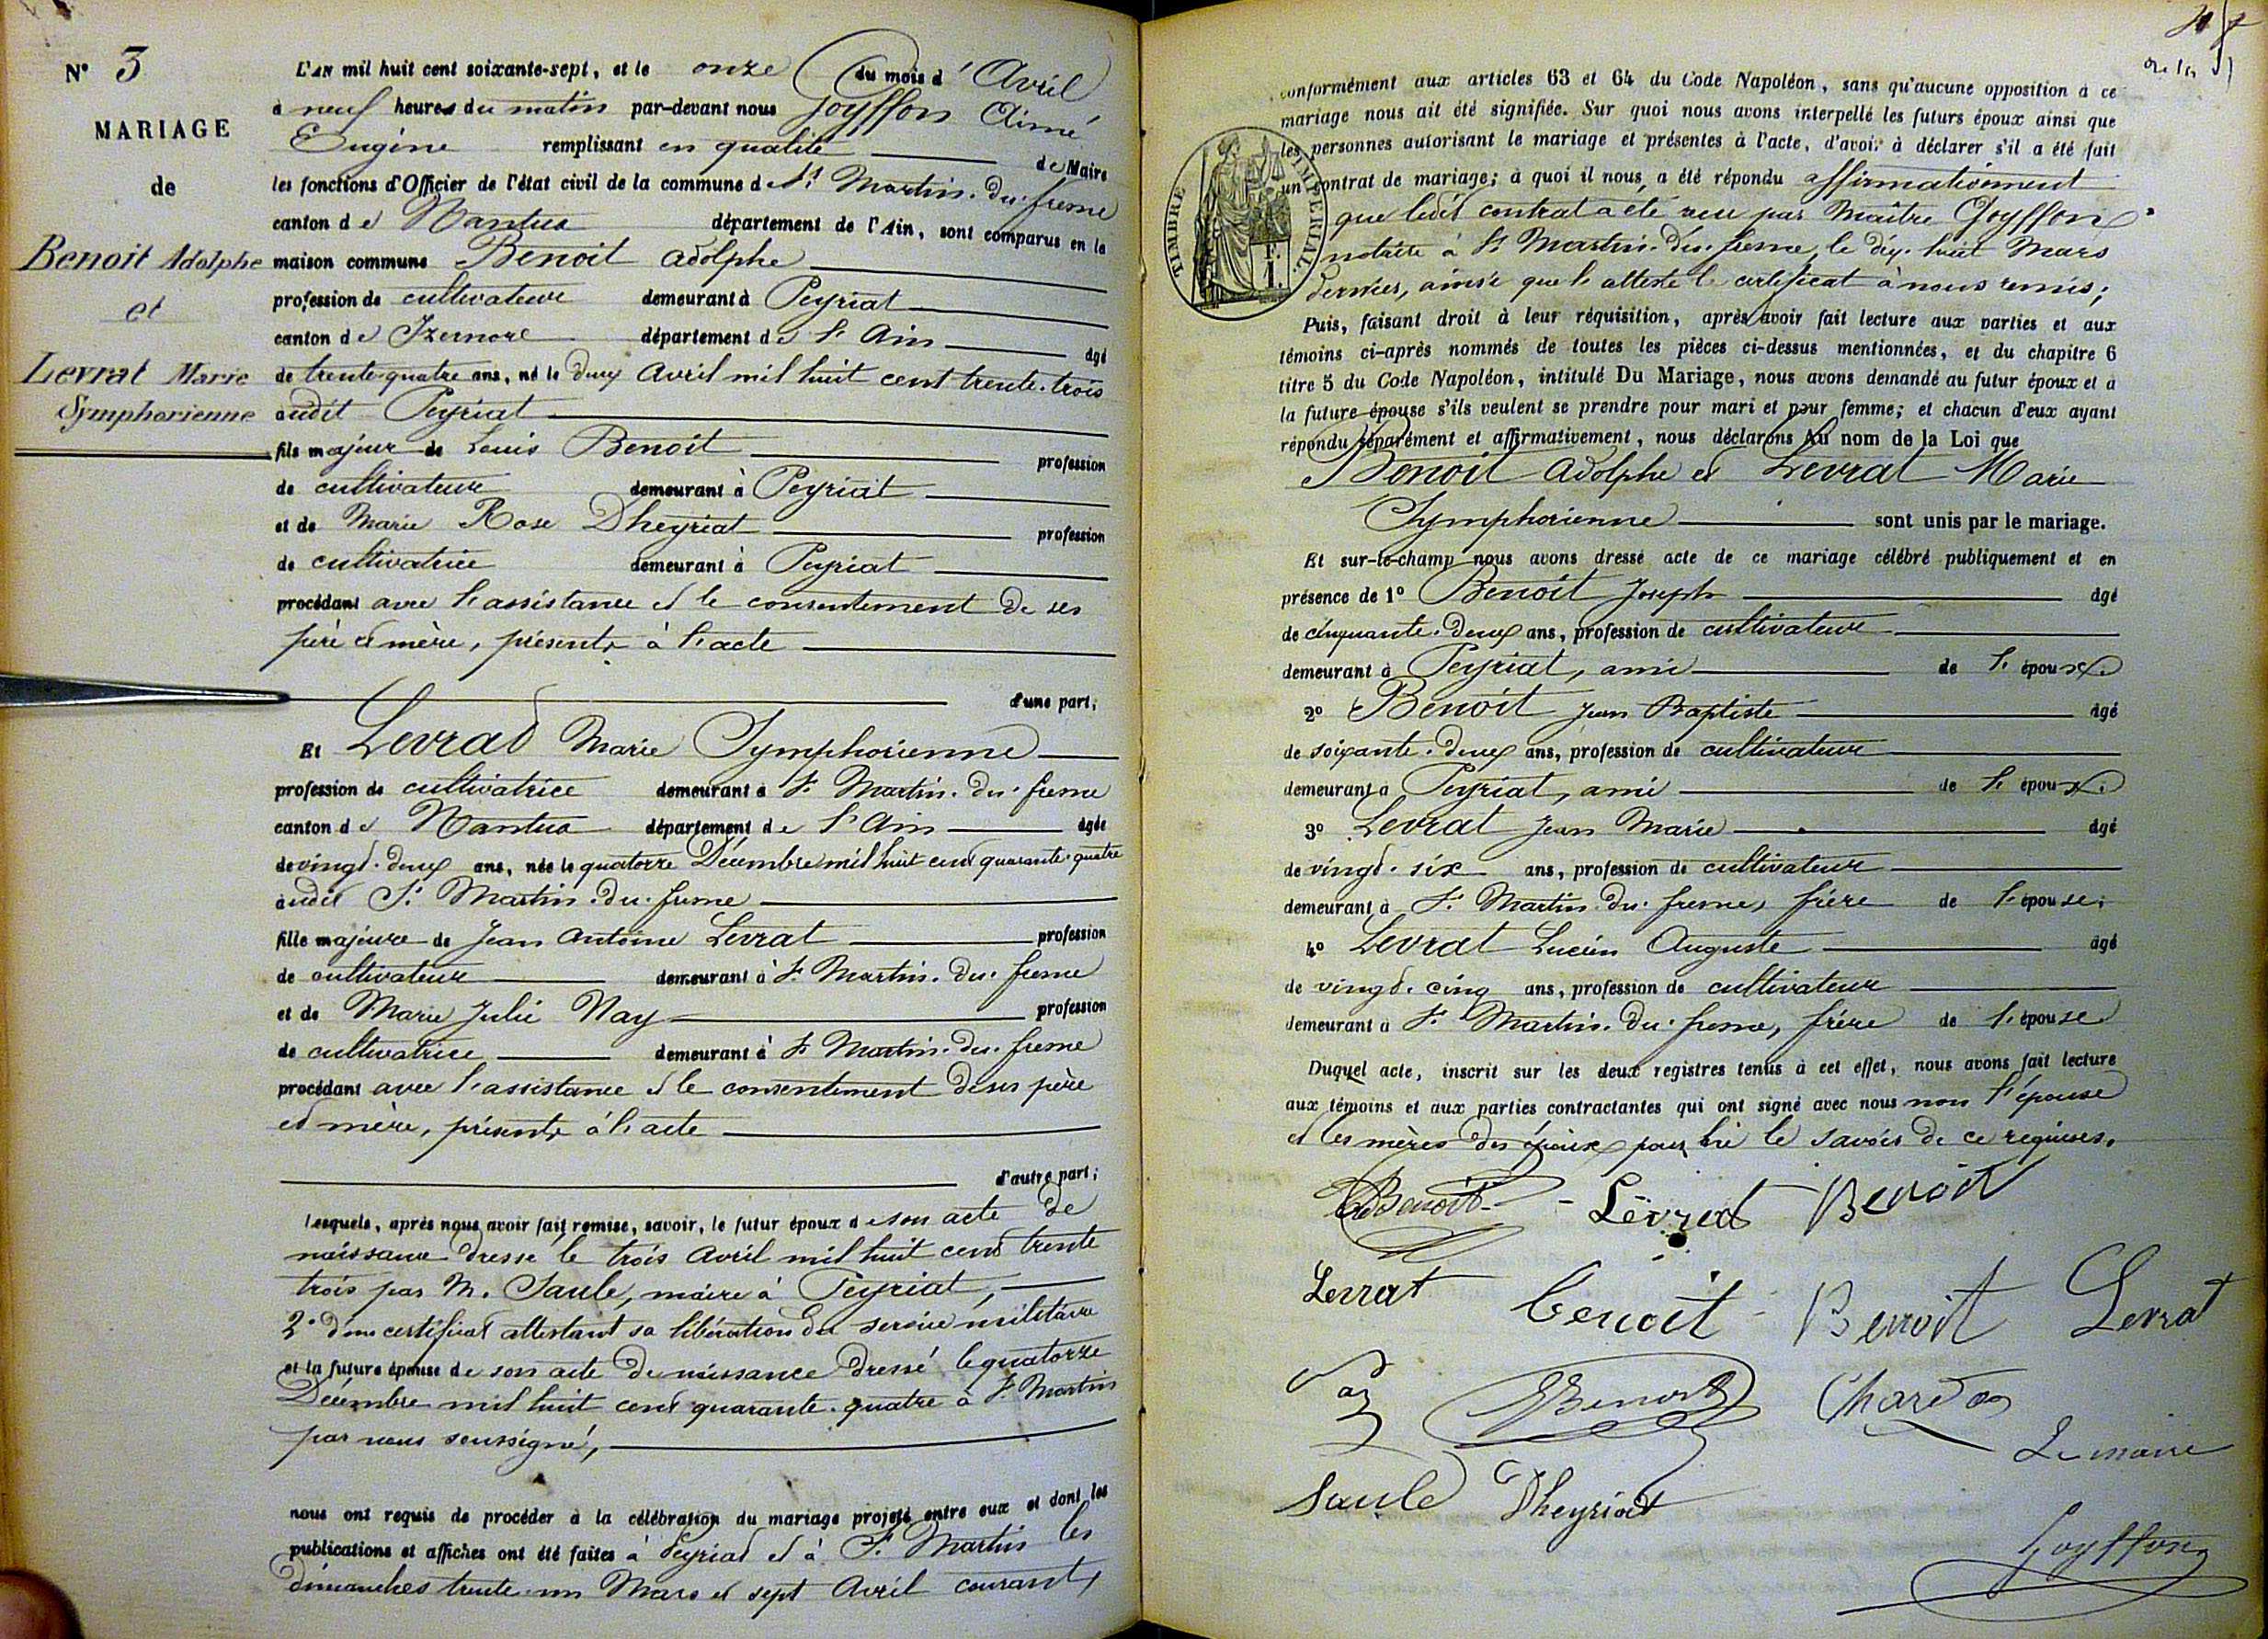 N° 3
MARIAGE
de
Benoit Adolphe
et
Levrat Marie
Symphorienne
L'AN mil huit cent soixante-sept, et le onze du mois d'Avril
à neuf heures du matin par-devant nous Goyffon Aimé
Eugène remplissant en qualité de Maire
les fonctions d'Officier de l'état civil de la commune de St Martin-du-fresne
canton de Nantua département de l'Ain, sont comparus en la
maison commune Benoit Adolphe
profession de cultivateur demeurant à Peyriat
canton de Izernore département de l'Ain âgé
de trente-quatre ans, né le deux Avril mil huit cent trente-trois
audit Peyriat
fils majeur de Louis Benoit profession
de cultivateur demeurant à Peyriat
et de Marie Rose Dheyriat profession
de cultivatrice demeurant à Peyriat
procédant avec l'assistance et le consentement de ses
père et mère, présents à l'acte
d'une part;
Et Levrat Marie Symphorienne
profession de cultivatrice demeurant à St Martin-du-fresne
canton de Nantua département de l'Ain âgée
de vingt-deux ans, née le quatorze Décembre mil huit cent quarante-quatre
audit St Martin-du-fresne
fille majeure de Jean Antoine Levrat profession
de cultivateur demeurant à St Martin-du-fresne
et de Marie Julie Nay profession
de cultivatrice demeurant à St Martin-du-fresne
procédant avec l'assistance et le consentement de ses père
et mère, présents à l'acte
d'autre part;
Lesquels, après nous avoir fait remise, savoir, le futur époux de son acte de
naissance dressé le trois Avril mil huit cent trente
trois par M. Saule, maire à Peyriat,
2° d'un certificat attestant sa libération du service militaire
et la future épouse de son acte de naissance dressé le quatorze
Décembre mil huit cent quarante-quatre à St Martin
par nous soussigné,
nous ont requis de procéder à la célébration du mariage projeté entre eux et dont les
publications et affiches ont été faites à Peyriat et à St Martin les
dimanches trente-un Mars et sept Avril courant,
conformément aux articles 63 et 64 du Code Napoléon, sans qu'aucune opposition à ce
mariage nous ait été signifiée. Sur quoi nous avons interpellé les futurs époux ainsi que
les personnes autorisant le mariage et présentes à l'acte, d'avoir à déclarer s'il a été fait
un contrat de mariage; à quoi il nous a été répondu affirmativement
que ledit contrat a été reçu par Maître Goyffon
notaire à St Martin-du-fresne, le dix-huit Mars
dernier, ainsi que l'atteste le certificat à nous remis;
TIMBRE IMPÉRIAL
1 F.
Puis, faisant droit à leur réquisition, après avoir fait lecture aux parties et aux
témoins ci-après nommés de toutes les pièces ci-dessus mentionnées, et du chapitre 6
titre 5 du Code Napoléon, intitulé Du Mariage, nous avons demandé au futur époux et à
la future épouse s'ils veulent se prendre pour mari et pour femme; et chacun d'eux ayant
répondu séparément et affirmativement, nous déclarons Au nom de la Loi que
Benoit Adolphe et Levrat Marie
Symphorienne sont unis par le mariage.
Et sur-le-champ nous avons dressé acte de ce mariage célébré publiquement et en
présence de 1° Benoit Joseph âgé
de cinquante-deux ans, profession de cultivateur
demeurant à Peyriat, ami de l'époux.
2° Benoit Jean Baptiste âgé
de soixante-deux ans, profession de cultivateur
demeurant à Peyriat, ami de l'époux.
3° Levrat Jean Marie âgé
de vingt-six ans, profession de cultivateur
demeurant à St Martin-du-fresne, frère de l'épouse;
4° Levrat Lucien Auguste âgé
de vingt-cinq ans, profession de cultivateur
demeurant à St Martin-du-fresne, frère de l'épouse
Duquel acte, inscrit sur les deux registres tenus à cet effet, nous avons fait lecture
aux témoins et aux parties contractantes qui ont signé avec nous non l'épouse
et les mères des époux pour ne le savoir de ce requises.
Benoit Levrat Benoit
Levrat Benoit Benoit Levrat
Benoit Chardon
Le maire
Saule Dheyriat
Goyffon